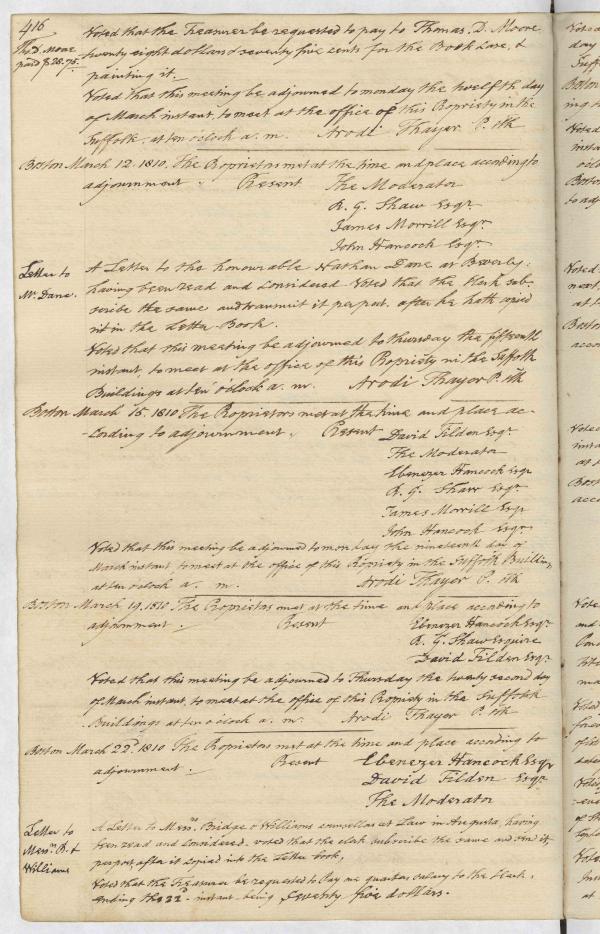 416
Voted that the Treasurer be requested to pay to Thomas. D. Moore
Tho.s D. Moore
twenty eight dollars & seventy five cents for the Book Case, &
paid $28.75.
painting it.
Voted that this meeting be adjourned to monday the twelfth day
of March instant, to meet at the office of this Propriety in the
Suffolk, at ten oclock a. m. Arodi Thayer P. Clk
Boston March 12. 1810. The Proprietors met at the time and place according to
adjournment. Present The Moderator
R. G. Shaw Esqr.
James Morrill Esqr.
John Hancock Esqr.
Letter to
Mr. Dane.
A Letter to the honourable Nathan Dane at Beverly:
having been read and considered. Voted that the Clerk sub-
scribe the same and transmit it per post. after he hath copied
it in the Letter Book.
Voted that this meeting be adjourned to thursday the fifteenth
instant, to meet at the office of this Propriety in the Suffolk
Buildings at ten o'clock a. m. Arodi Thayer P. Clk
Boston March 15. 1810. The Proprietors met at the time and place ac-
cording to adjournment. Present David Tilden Esqr.
The Moderator
Ebenezer Hancock Esqr
R. G. Shaw Esqr.
James Morrill Esqr
John Hancock Esqr.
Voted that this meeting be adjourned to monday the nineteenth day of
March instant to meet at the office of this Propriety in the Suffolk Building
at ten oclock a. m. Arodi Thayer P. Clk
Boston March 19. 1810 The Proprietors met at the time and place according to
adjournment. Present Ebenezer Hancock Esqr.
R. G. Shaw Esquire
David Tilden Esqr.
Voted that this meeting be adjourned to Thursday the twenty second day
of March instant, to meet at the office of this Propriety in the Suffolk
Buildings at ten o'clock a. m. Arodi Thayer P. Clk
Boston March 22d. 1810 The Proprietors met at the time and place according to
adjournment. Present Ebenezer Hancock Esqr
David Tilden Esqr.
The Moderator
Letter to
Messrs. B. &
Williams
A Letter to Messrs. Bridge & Williams councellors at Law in Augusta, having
been read and considered. voted that the clerk subscribe the same and send it,
per post, after it copied into the Letter book,
Voted that the Treasurer be requested to Pay one quarters salary to the Clerk,
ending the 22d. instant being Seventy five dollars.